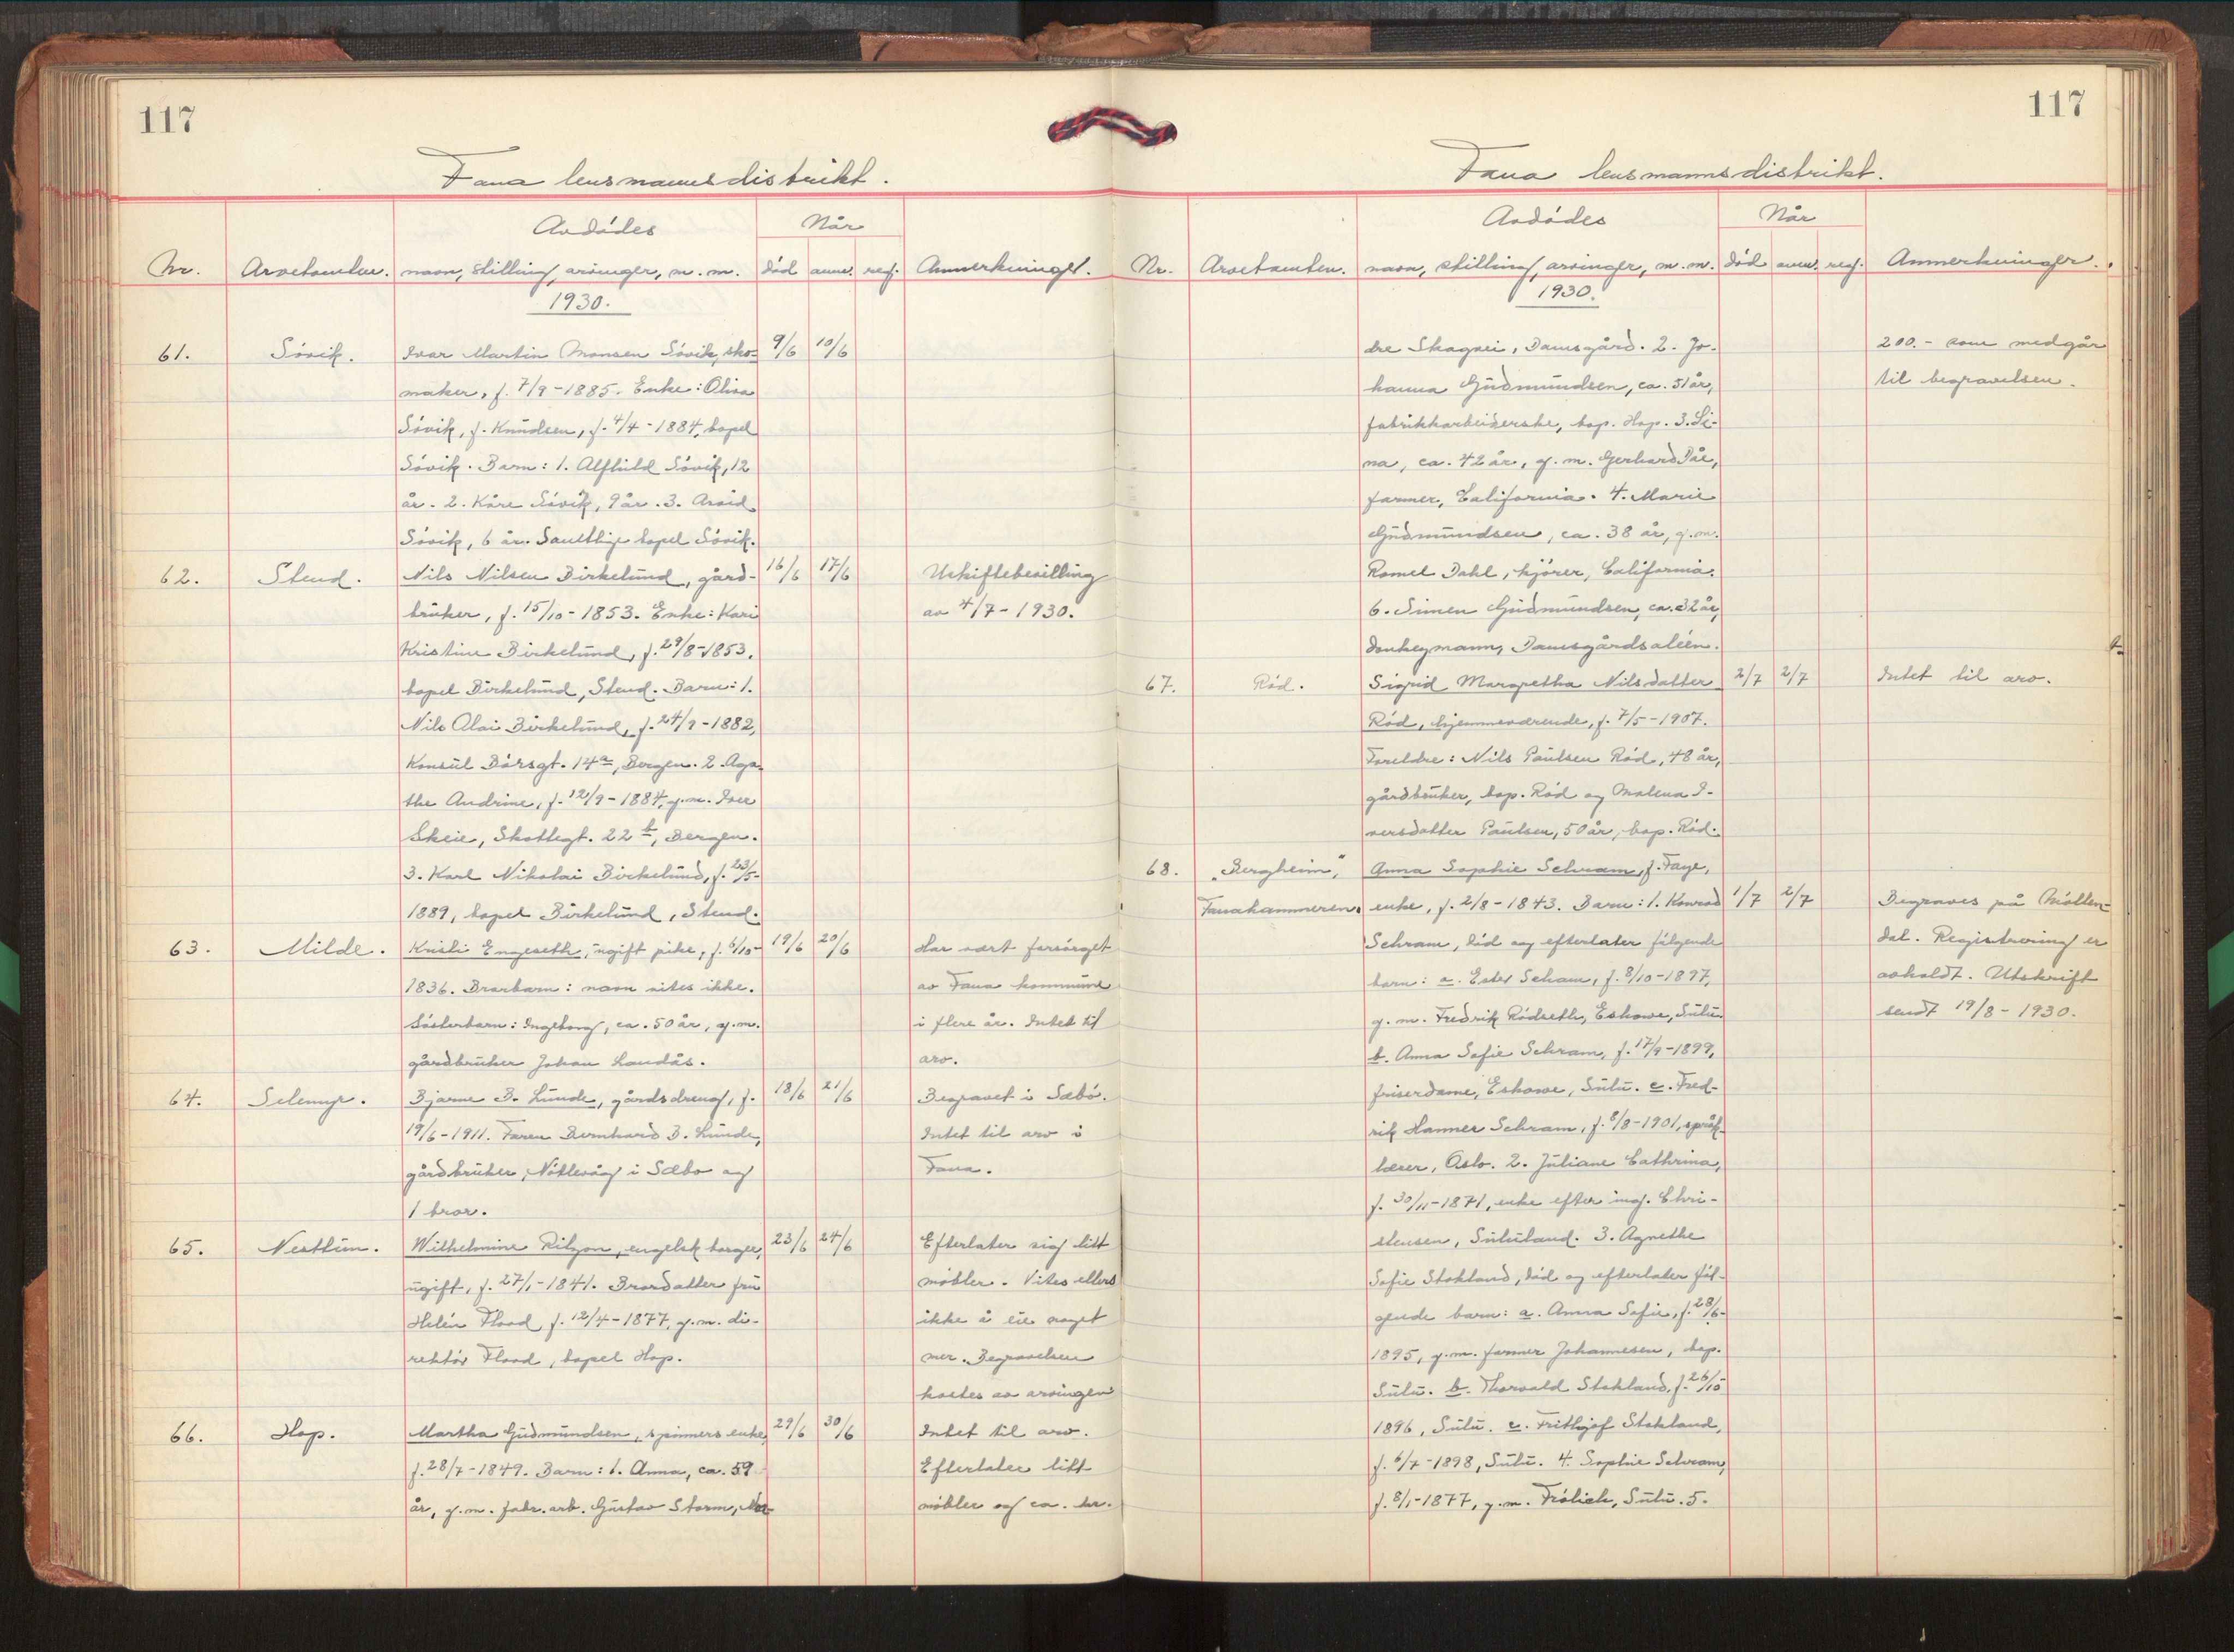 117
Fana lensmannsdistrikt.
Nr. Arvetomten. Avdødes navn, stilling, arvinger, m. m. Når død anm. reg. Anmerkninger.
1930.
61. Søvik. Ivar Martin Monsen Søvik, sko- 9/6 10/6
maker, f. 7/9-1885. Enke: Olina
Søvik, f. Knudsen, f. 4/4-1884, bopel
Søvik. Barn: 1. Alfhild Søvik, 12
år. 2. Kåre Søvik, 9 år. 3. Arvid
Søvik, 6 år. Samtlige bopel Søvik.
62. Stend. Nils Nilsen Birkelund, gård- 16/6 17/6 Uskiftebevilling
bruker, f. 15/10-1853. Enke: Kari av 4/7-1930.
Kristine Birkelund, f. 29/8-1853,
bopel Birkelund, Stend. Barn: 1.
Nils Olai Birkelund, f. 24/9-1882,
Konsul Børsgt. 14a, Bergen. 2. Aga-
the Andrine, f. 12/9-1884, g.m. Iver
Skeie, Skottegt. 22b, Bergen.
3. Karl Nikolai Birkelund, f. 23/5-
1889, bopel Birkelund, Stend.
63. Milde. Kristi Engeseth, ugift pike, f. 6/10- 19/6 20/6 Har vært forsørget
1836. Brorbarn: navn vites ikke. av Fana kommune
Søsterbarn: Ingeborg, ca. 50 år, g.m. i flere år. Intet til
gårdbruker Johan Landås. arv.
64. Selenge. Bjarne B. Lunde, gårdsdreng, f. 18/6 21/6 Begravet i Sæbø.
19/6-1911. Faren Bernhard B. Lunde, Intet til arv i
gårdbruker, Nøttevåg i Sæbø og Fana.
1 bror.
65. Nesttun. Wilhelmine Rilyon, engelsk borger, 23/6 24/6 Efterlater sig litt
ugift, f. 27/1-1841. Brordatter fru møbler. Vites ellers
Helén Flood, f. 12/4-1877, g.m. di- ikke å eie noget
rektør Flood, bopel Hop. mer. Begravelsen
kostes av arvingen
66. Hop. Martha Gudmundsen, spinners enke, 29/6 30/6 Intet til arv.
f. 28/7-1849. Barn: 1. Anna, ca. 59 Efterlater litt
år, g.m. fabr. arb. Gustav Storm, Nor- møbler og ca. kr.
117
Fana lensmannsdistrikt.
Nr. Arvetomten. Avdødes navn, stilling, arvinger, m. m. Når død anm. reg. Anmerkninger.
1930.
dre Skogvei, Damsgård. 2. Jo- 200.- som medgår
hanna Gudmundsen, ca. 51 år, til begravelsen.
fabrikkarbeiderske, bop. Hop. 3. Li-
na, ca. 42 år, g.m. Gerhard Dåe,
farmer, California. 4. Marie
Gudmundsen, ca. 38 år, g.m.
Romel Dahl, kjører, California.
6. Simen Gudmundsen, ca. 32 år,
donkeymann, Damsgårdsaléen.
67. Rød. Sigrid Margretha Nilsdatter 2/7 2/7 Intet til arv.
Rød, hjemmeværende, f. 7/5-1907.
Foreldre: Nils Paulsen Rød, 48 år,
gårdbruker, bop. Rød og Malena I-
versdatter Paulsen, 50 år, bop. Rød.
68. "Bergheim", Anna Sophie Schram, f. Faye,
Fanahammeren. enke, f. 2/8-1843. Barn: 1. Konrad 1/7 2/7 Begraves på Møllen-
Schram, død og efterlater følgende dal. Registrering er
barn: a. Ester Scham, f. 8/10-1897, avholdt. Utskrift
g.m. Fredrik Rødseth, Eshowe, Sulu. sendt 19/8-1930.
b. Anna Sofie Schram, f. 17/9-1899,
friserdame, Eshowe, Sulu. c. Fred-
rik Hammer Schram, f. 8/8-1901, språk-
lærer, Oslo. 2. Juliane Cathrina,
f. 30/11-1871, enke efter ing. Chri-
stensen, Sululand. 3. Agnethe
Sofie Stokland, død og efterlater føl-
gende barn: a. Anna Sofie, f. 28/6-
1895, g.m. farmer Johannesen, bop.
Sulu. b. Thorvald Stokland, f. 26/10
1896, Sulu. c. Frithjof Stokland,
f. 6/7-1898, Sulu. 4. Sophie Schram,
f. 8/1-1877, g.m. Frølich, Sulu. 5.